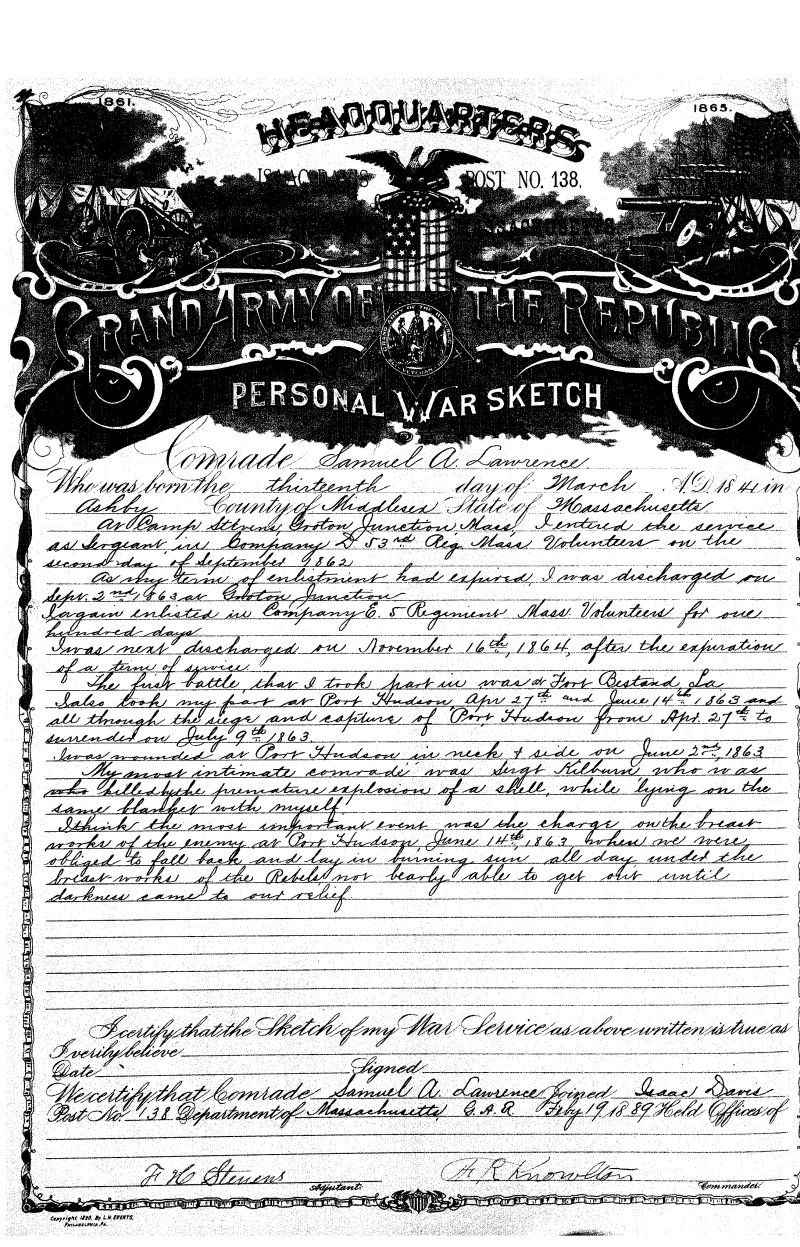 1861.
1865.
HEADQUARTERS
ISAAC DAVIS POST NO. 138.
MASSACHUSETTS
GRAND ARMY OF THE REPUBLIC
PERSONAL WAR SKETCH
Comrade Samuel A. Lawrence
Who was born the thirteenth day of March A.D. 1841 in
Ashby County of Middlesex State of Massachusetts
At Camp Stevens, Groton Junction Mass, I entered the service
as Sergeant in Company D 53rd Reg Mass Volunteers on the
second day of September 1862
As my term of enlistment had expired, I was discharged on
Sept. 2nd 1863 at Groton Junction
I again enlisted in Company E. 5 Regiment Mass. Volunteers for one
hundred days
I was next discharged on November 16th, 1864, after the expiration
of a term of service.
The first battle, that I took part in was at Fort Bestand, La
I also took my part at Port Hudson, Apr 27th and June 14th 1863 and
all through the siege and capture of Port Hudson from Apr. 27th to
surrender on July 9th 1863.
I was wounded at Port Hudson in neck & side on June 2nd, 1863
My most intimate comrade was Sergt Kilburn, who was
who killed by the premature explosion of a shell, while lying on the
same blanket with myself
I think the most important event was the charge on the breast
works of the enemy at Port Hudson, June 14th, 1863, when we were
obliged to fall back and lay in burning sun all day under the
breast works of the Rebels, not bearly able to get out until
darkness came to our relief.
I certify that the Sketch of my War Service as above written is true as
I verily believe
Date Signed
We certify that Comrade Samuel A. Lawrence Joined Isaac Davis
Post No. 138 Department of Massachusetts, G.A.R Feby 19 1889 Held Offices of
F H Stevens Adjutant. F. R. Knowlton Commander.
Copyright 1890, By L.H. EVERTS,
PHILADELPHIA, PA.